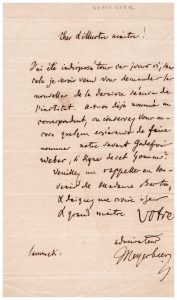 Cher & illustre maître !
J'ai été indisposé tous ces jours ci, sans
cela je serais venu vous demander les
nouvelles de la dernière séance de
l'institut. a-t-on déjà nommé un
correspondant, ou conservez vous en-
core quelque espérance de faire
nommer notre savant Godefroi
Weber, si digne de cet honneur?
Veuillez me rappeller au sou-
venir de Madame Berton,
& daignez me croire
grand maître
votre
admirateur
Meyerbeer
Samedi.